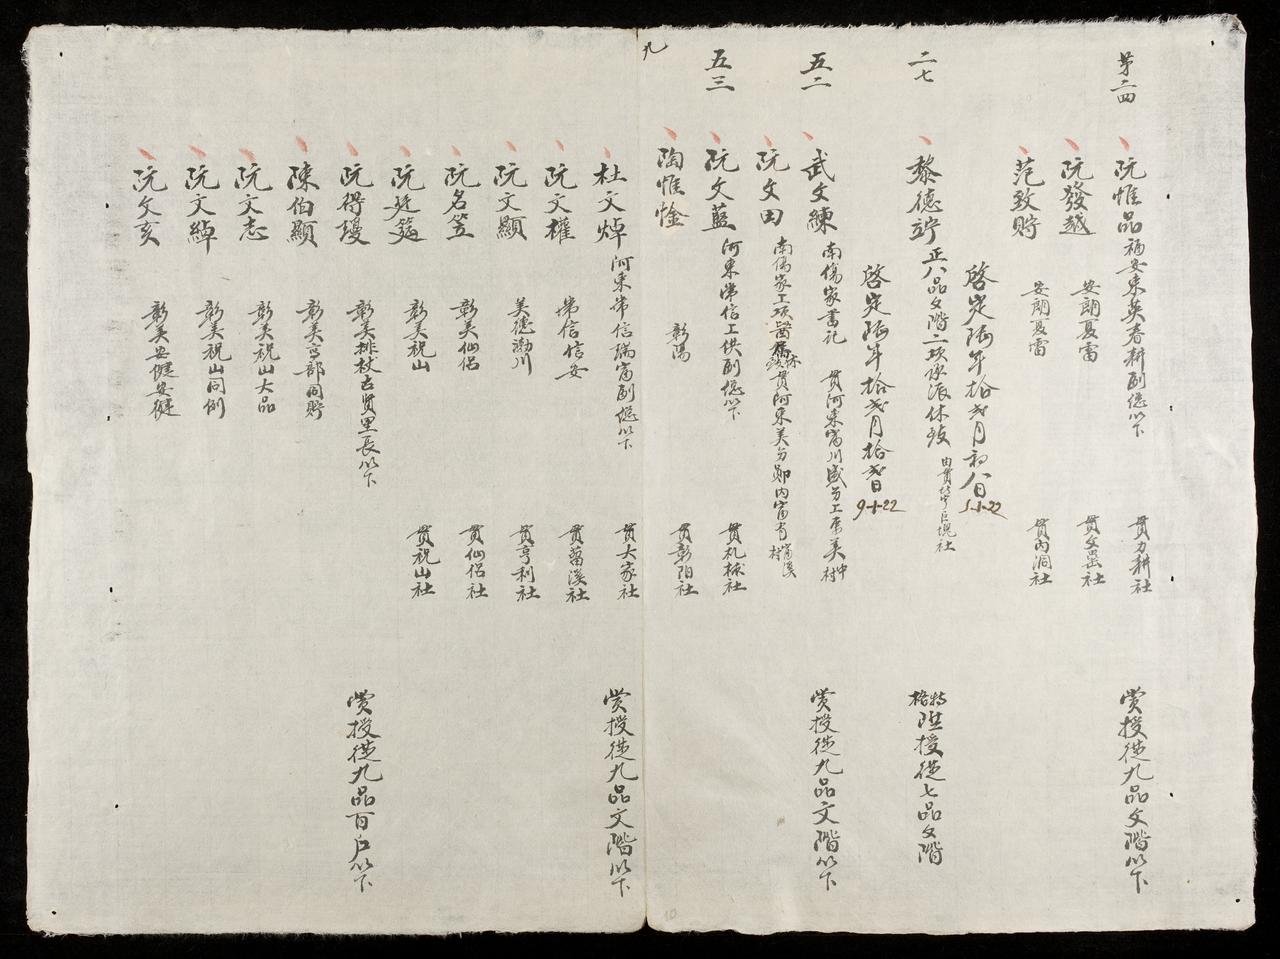 第二四
阮惟品 福安東英春耕副總以下 貫力耕社 賞授從九品文階以下
阮發越 安朗夏雷 貫文 社
范致貯 安朗夏雷 貫內洞社
啓定陸年拾貳月初八日 5-1-22
二七
黎德竚 正八品文階二項承派休致 由貫 社 特格陞授從七品文階
啓定陸年拾貳月拾貳日 9-1-22
五二
武文練 南傷家書記 貫河東富川盛 上 美中村 賞授從九品文階以下
阮文田 南傷家 項醫屬休致貫河東美 鄭內富 富溪村
五三
阮文藍 河東常信上供副總以下 貫 社
陶惟惍 彰陽 貫彰陽社
九
杜文焯 河東常信瑞富副總以下 貫大家社 賞授從九品文階以下
阮文權 常信信安 貫葛溪社
阮文顯 美德澈川 貫亨利社
阮名笠 彰美仙侶 貫仙侶社
阮廷筵 彰美祝山 貫祝山社
阮得瓊 彰美排杖古賢里長以下 賞授從九品百戶以下
陳伯顯 彰美高部同貯
阮文志 彰美祝山大品
阮文綽 彰美祝山同例
阮文亥 彰美安健安健
10